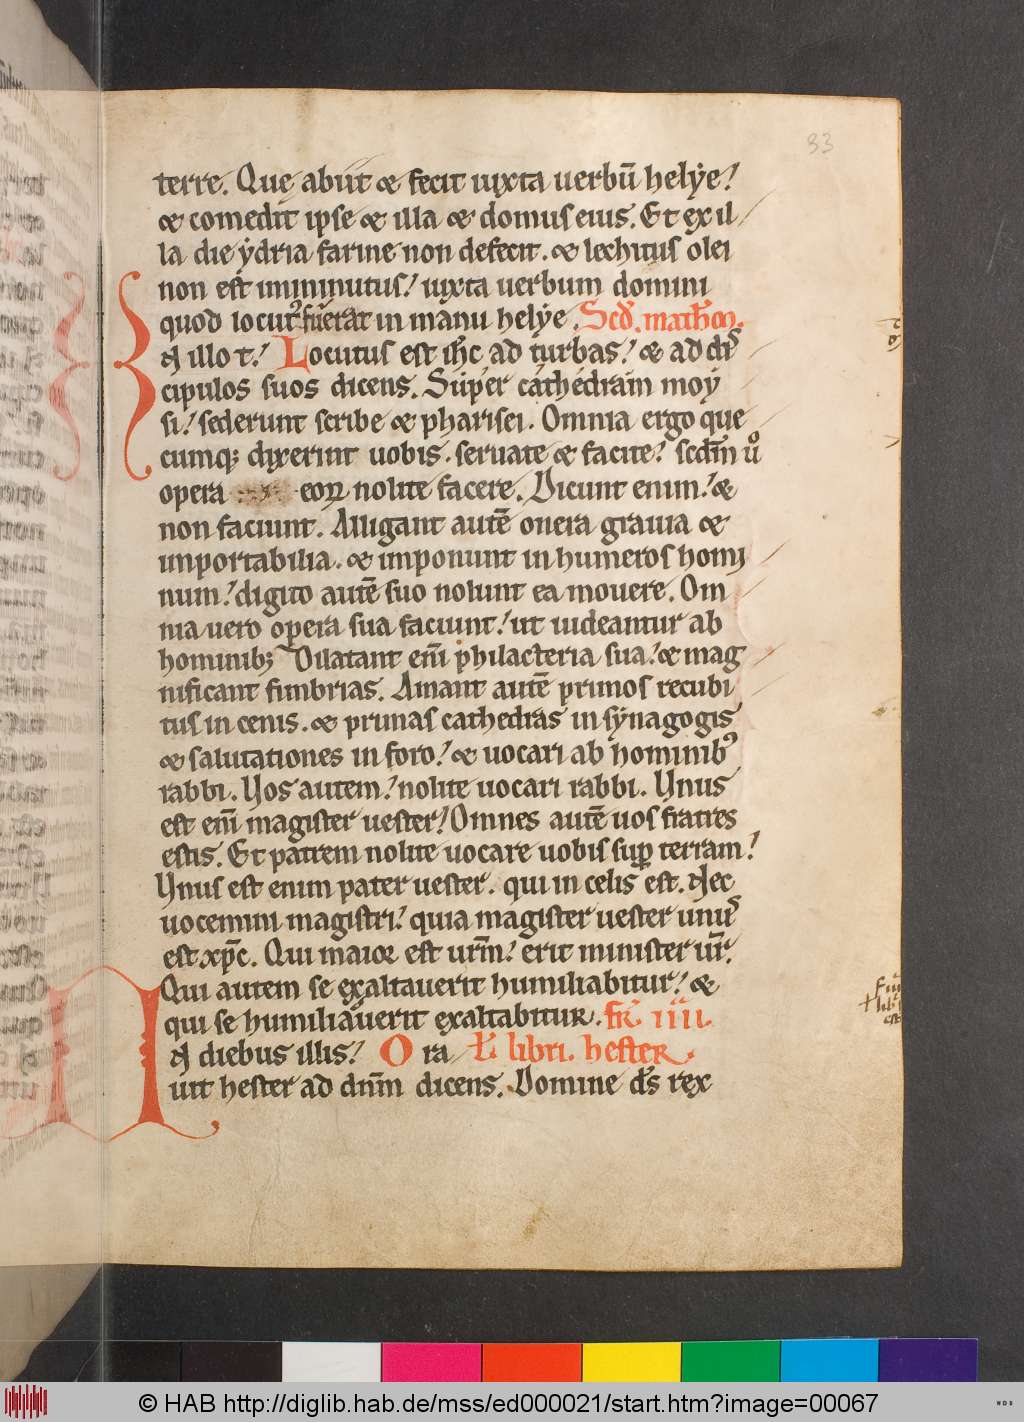 33
terre. Que abiit & fecit iuxta uerbū helye!
& comedit ipse & illa & domus eius. Et ex il/
la die ẏdria farine non defecit. & lechitus olei
non est imminutus! iuxta uerbum domini
quod locutꝰ fuerat in manu helye. Scd̄. math̄m.
N illo t.! Locutus est ih̄c ad turbas! & ad dis
cipulos suos dicens. Super cathedram moy
si! sederunt scribe & pharisei. Omnia ergo que
cumqꝫ dixerint uobis. seruate & facite! scdm̄ uͦ
opera eoꝝ nolite facere. Dicunt enim! &
non faciunt. Alligant autē onera grauia &
inportabilia. & imponunt in humeros homi
num! digito autē suo nolunt ea mouere. Om
nia uero opera sua faciunt! ut uideantur ab
hominibꝫ Dilatant eni̅ philacteria sua! & mag
nificant fimbrias. Amant autē primos recubi
tus in cenis. & primas cathedras in synagogis
& salutationes in foro! & uocari ab hominibꝰ
rabbi. Vos autem! nolite uocari rabbi. Vnus
est eni̅ magister uester! Omnes autē uos fratres
estis. Et patrem nolite uocare uobis suꝑ terram!
Vnus est enim pater uester. qui in celis est. Nec
uocemini magistri! quia magister uester unus
est xp̄c. Qui maior est urm̄! erit minister ur̄.
Qui autem se exaltauerit humiliabitur! &
qui se humiliauerit exaltabitur. fr̄ iiii.
N diebus illis! Ora ƚ libri. hester.
uit hester ad dnm̄ dicens. Domine ds̄ rex
© HAB http://diglib.hab.de/mss/ed000021/start.htm?image=00067